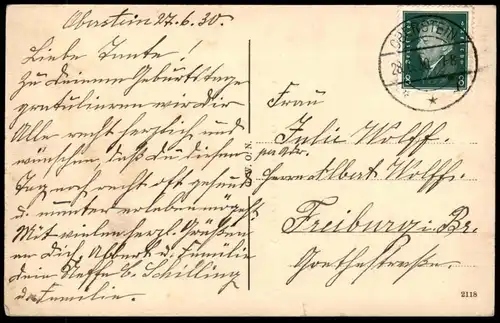 Oberstein 27.6.30.
Liebe Tante!
Zu Deinem Geburtstage
gratulieren wir Dir
Alle recht herzlich und
wünschen, daß du diesen
Tag noch recht oft gesund
u. munter erleben mögest
Mit vielen herzl. Grüßen
an Dich, Albert u. Familie
dein Neffe E. Schilling
u. Familie.
OBERSTEIN
Frau
Julie Wolff
per Adr.
Herrn Albert Wolff.
Freiburg i. Br.
Goethestraße.
W. O. N.
2118